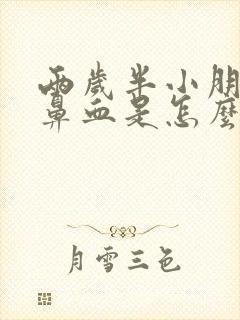 兩歲半小朋
鼻血是怎麼
月雪三色